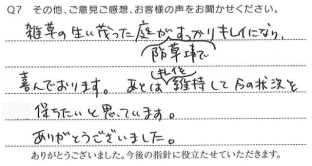 Q7 その他、ご意見ご感想、お客様の声をお聞かせください。
雑草の生い茂った庭がすっかりキレイになり、
防草砂で
喜んでおります。あとは維持して今の状況を
キレイを
保ちたいと思っています。
ありがとうございました。
ありがとうございました。今後の指針に役立たせていただきます。